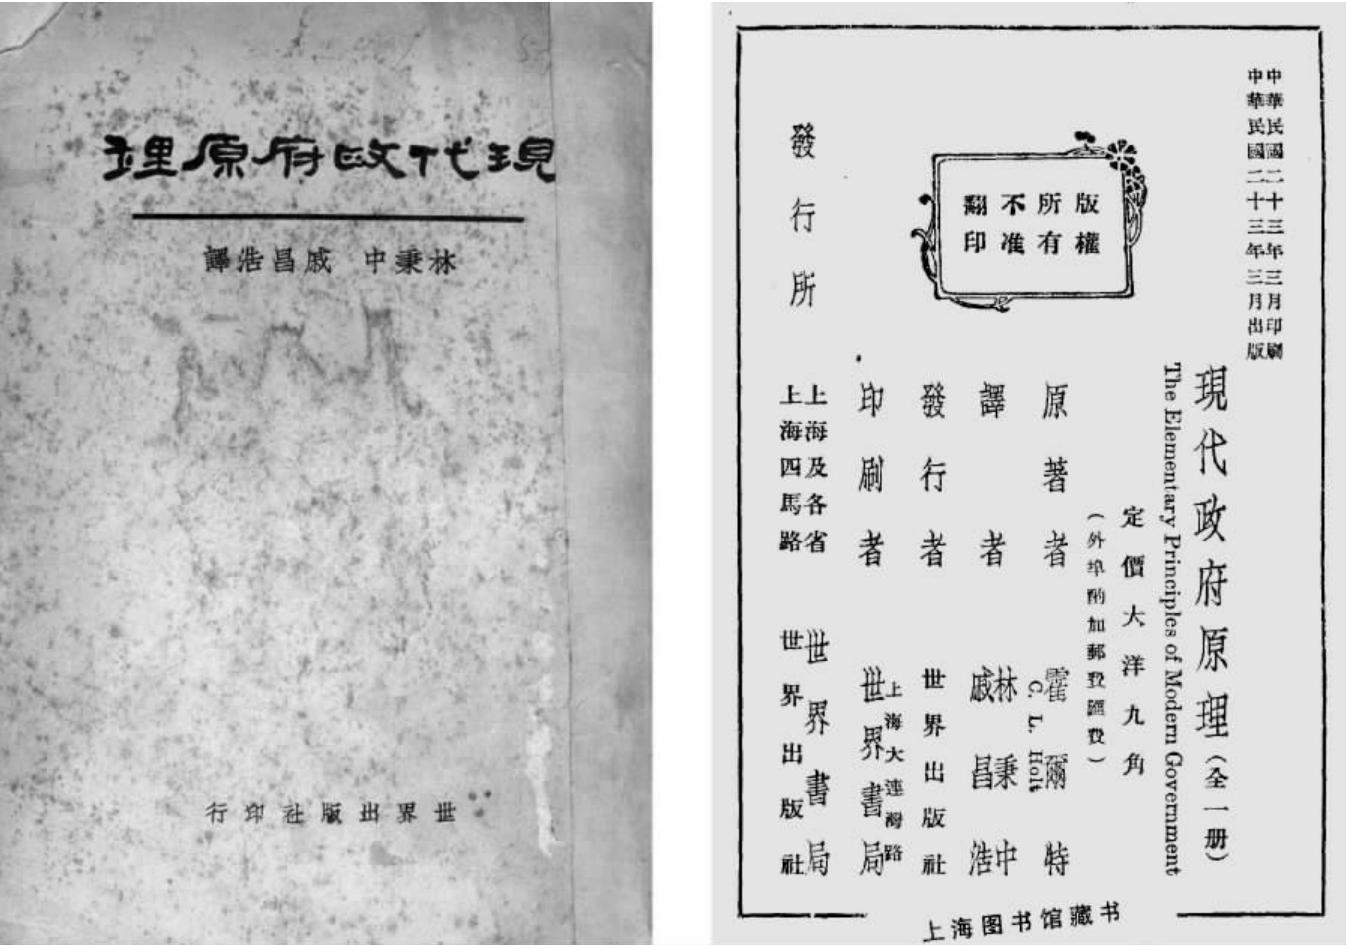 現代政府原理
林秉中 戚昌浩譯
世界出版社印行
中華民國二十三年三月印刷
中華民國二十三年三月出版
現代政府原理(全一册)
The Elementary Principles of Modern Government
定價大洋九角
(外埠酌加郵費匯費)
版權
所有
不准
翻印
原著者 霍爾特
C. L. Holt
譯者 林秉中
戚昌浩
發行者 世界出版社
印刷者 上海大連灣路
世界書局
發行所
上海及各省 世界書局
上海四馬路 世界出版社
上海图书馆藏书